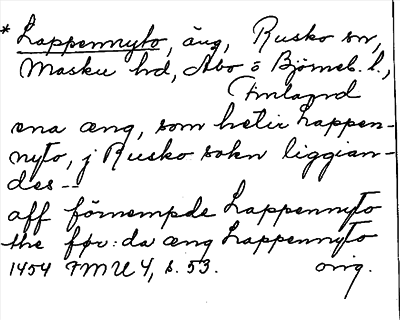 * Lappennyto, äng, Rusko sn,
Masku hd, Åbo o Björneb. l.,
Finland
ena æng, som hetir Lappen-
nyto, j Rusko sokn liggian-
des --
aff förnempde Lappennyto
the før:da æng Lappennyto
1454 FMU 4, s. 53. orig.